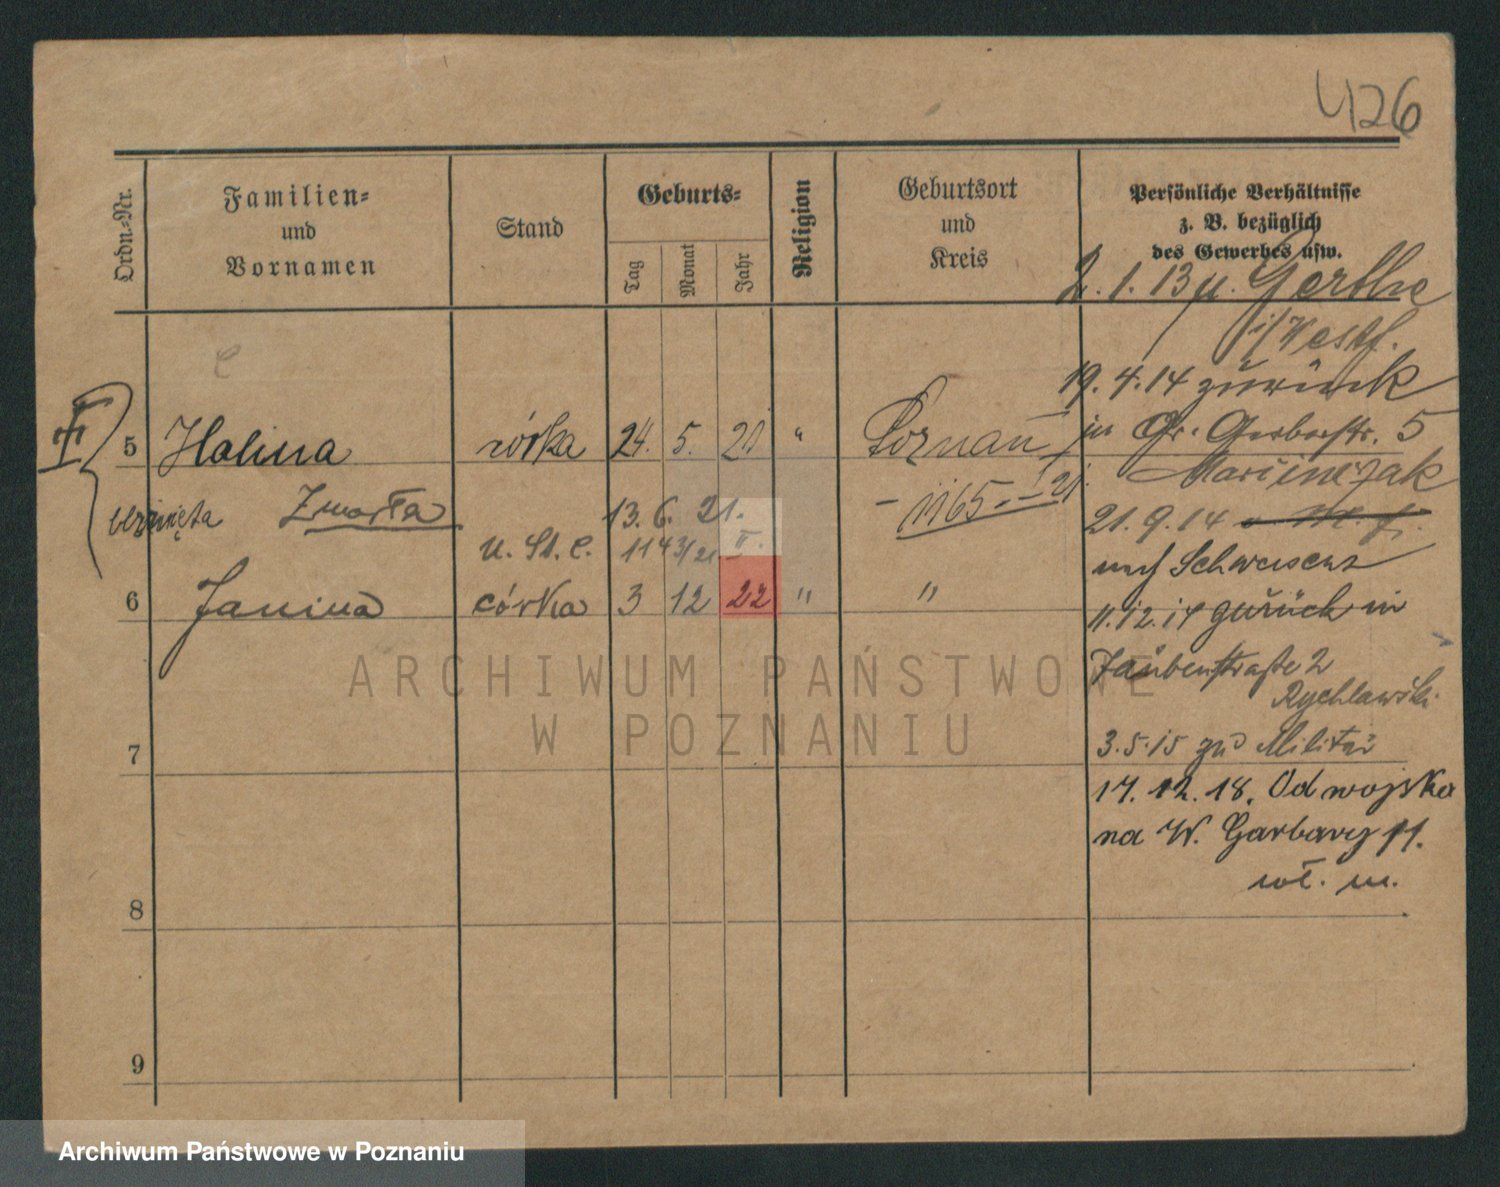 426
Ordn.-Nr.
Familien-
und
Vornamen
Stand
Geburts-
Tag
Monat
Jahr
Religion
Geburtsort
und
Kreis
Persönliche Verhältnisse
z. B. bezüglich
des Gewerbes usw.
2. 1. 13 n. Gerthe
i/Westf.
19. 4. 14 zurück
in Gr. Gerberstr. 5
Marcinczak
21. 9. 14
nach Schwersenz
11. 12. 14 zurück in
Taubenstraße 2
Rychlawski
3. 5. 15 zu Militär
17. 12. 18. Od wojska
na W. Garbary 11.
wł. m.
III
5 Halina córka 24. 5. 20 " Poznań
Zmarła 13. 6. 21. – 1165 – 21.
U. St. C. 1143/21 II.
6 Janina córka 3 12 22 " "
7
8
9
ARCHIWUM PAŃSTWOWE
W POZNANIU
Archiwum Państwowe w Poznaniu